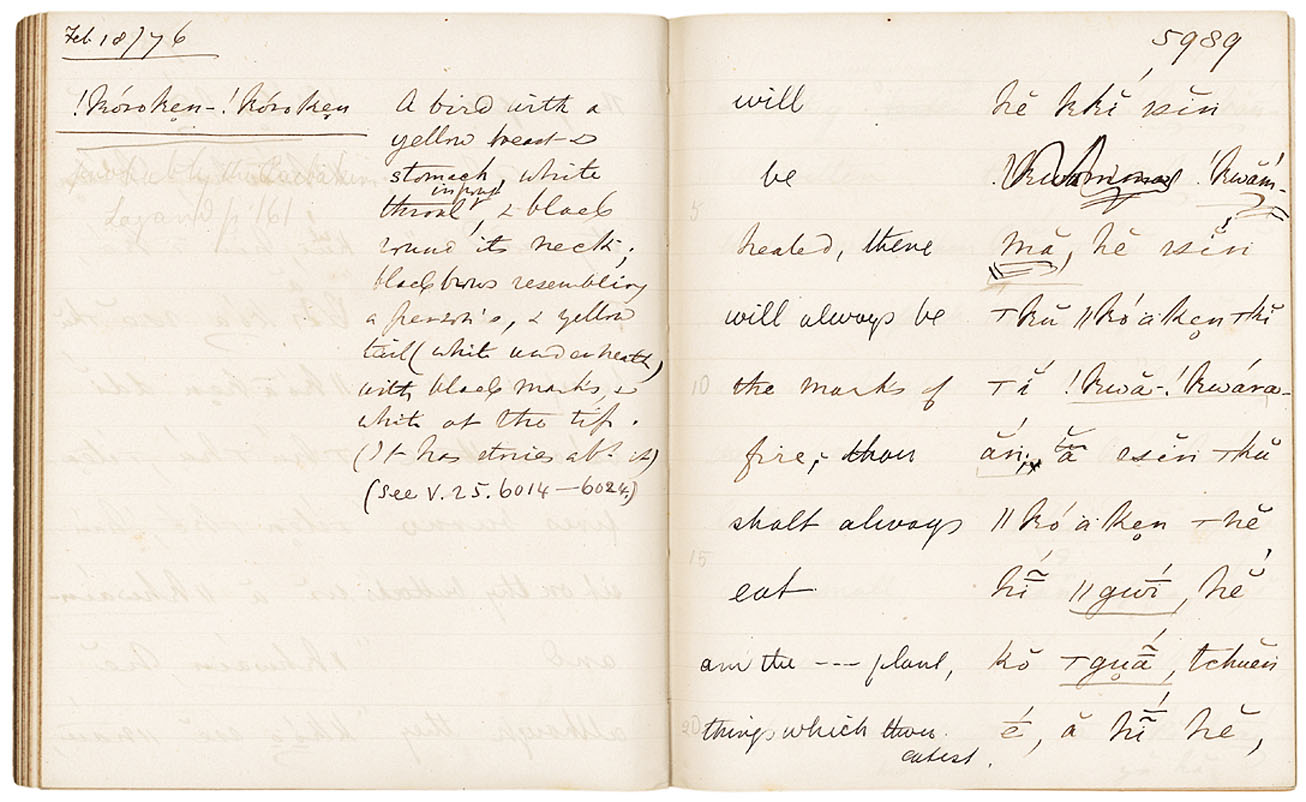 Feb. 18/76
!kóroken-!kóroken
A bird with a
yellow breast &
stomach, white
in front
throat, & black
round its neck;
black brows resembling
a person's, & yellow
tail (white underneath)
with black marks, &
white at the tip.
(It has stories abt. it)
(See V. 25. 6014—6024.)
probably the
p 161
5989
will hĕ kkĭ' sĭn
be !kwăḿ-
5
healed, there mă, hĕ sĭn
will always be ⊤kŭ ǁkó̤ăkẹn ⊤kĭ
10 the marks of ⊤ĭ !kwă-!kwára-
fire; thou ăń; ă ssĭn ⊤kŭ
shalt always ǁkó ăkẹn ⊤hĕ
15
eat hĭ̃ ǁgwĭ́, hĕ́
am the --- plant, kŏ ⊤gụã́, tchuĕn
20 things which thou é, ă hĭ̃ hĕ,
eatest.